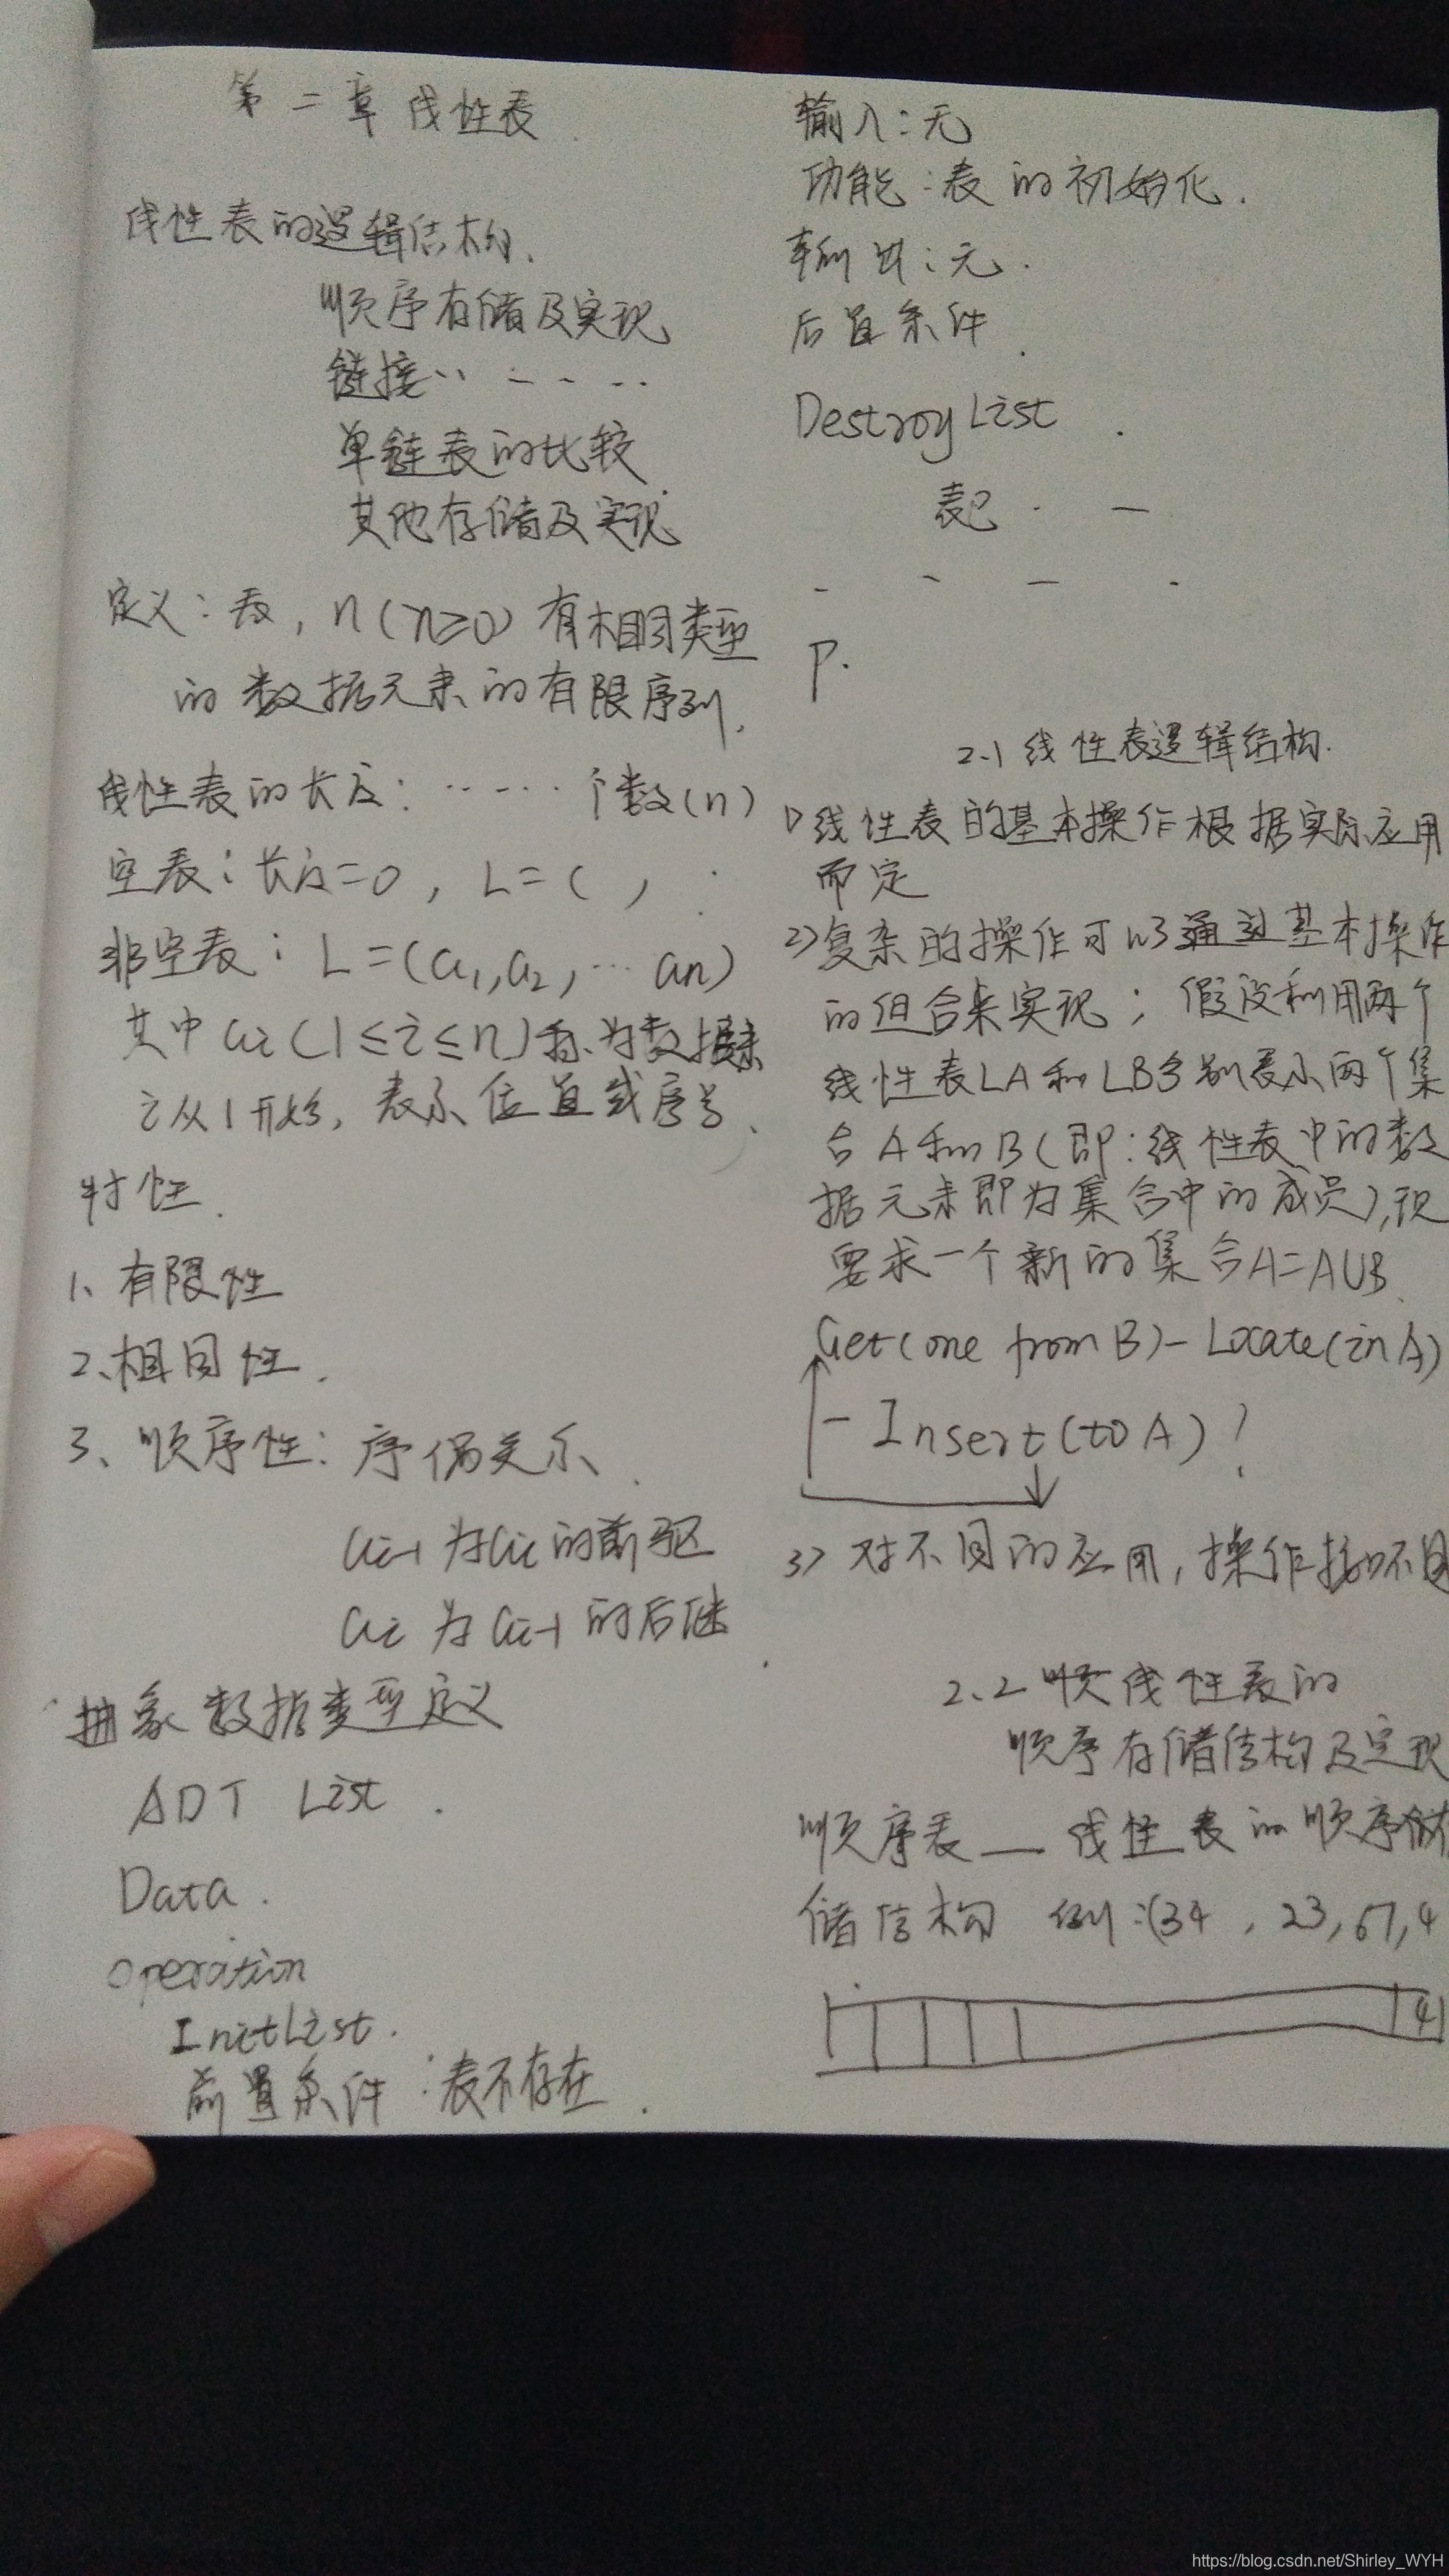 第二章 线性表
线性表的逻辑结构、
顺序存储及实现
链接‥ - - - ‥
单链表的比较
其他存储及实现
定义：表，n(n≥0)有相同类型
的数据元素的有限序列、
线性表的长度：…… 个数(n)
空表：长度=0，L=( )
非空表：L=(a1,a2,… an)
其中ai(1≤i≤n)称为数据元素
i从1开始，表示位置或序号、
特性.
1、有限性
2、相同性.
3、顺序性：序偶关系.
ai-1为ai的前驱
ai为ai-1的后继
抽象数据类型定义
ADT List.
Data.
operation
InitList.
前置条件：表不存在.
输入：无
功能：表的初始化.
输出：无.
后置条件.
DestroyList.
表已 . —
- - — -
P.
2.1 线性表逻辑结构.
1>线性表的基本操作根据实际应用
而定
2>复杂的操作可以通过基本操作
的组合来实现；假设利用两个
线性表LA和LB分别表示两个集
合A和B(即：线性表中的数
据元素即为集合中的成员),现
要求一个新的集合A=A∪B.
Get(one from B)- Locate(in A)
- Insert(to A)!
3> 对不同的应用，操作接口不同
2.2 线性表的
顺序存储结构及实现
顺序表—线性表的顺序存
储结构 例:(34 , 23, 67, 4
4
https://blog.csdn.net/Shirley_WYH